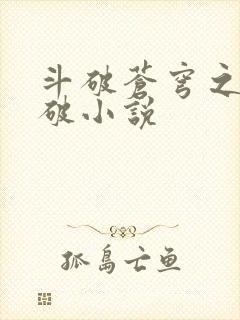 斗破苍穹之
破小说
孤岛亡鱼